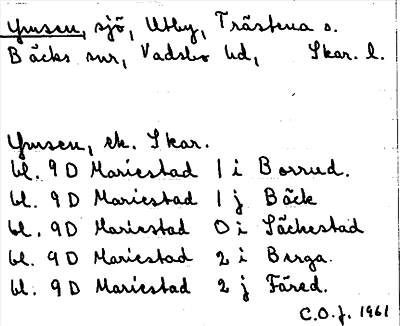 Ymsen, sjö, Utby, Trästena o.
Bäcks snr, Vadsbo hd, Skar. l.
Ymsen, ek. Skar.
bl. 9D Mariestad 1 i Borrud.
bl. 9D Mariestad 1 j Bäck
bl. 9D Mariestad 0 i Säckestad
bl. 9D Mariestad 2 i Berga.
bl. 9D Mariestad 2 j Färed.
C.O.J. 1961